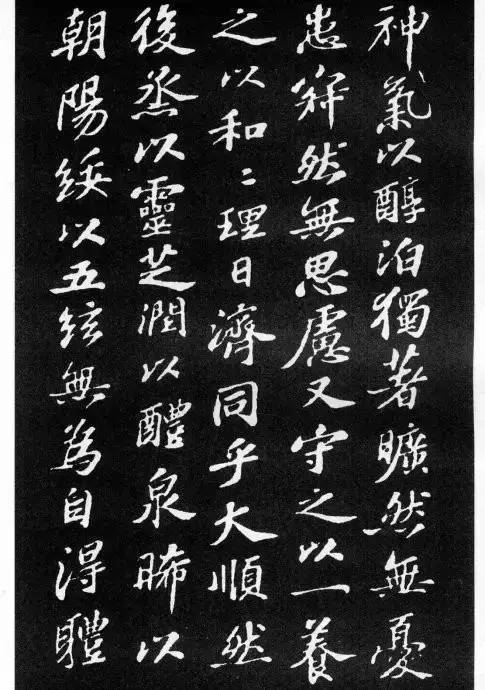 神氣以醇泊獨著曠然無憂
患寂然無思慮又守之以一養
之以和〻理日濟同乎大順然
後烝以靈芝潤以醴泉晞以
朝陽綏以五弦無為自得體